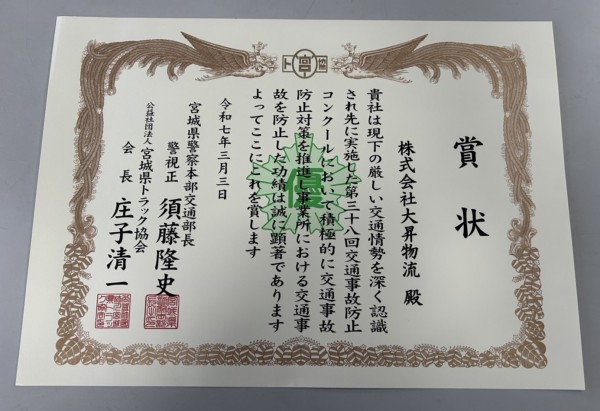 ト宮協
賞状
株式会社大昇物流 殿
貴社は現下の厳しい交通情勢を深く認識
され先に実施した第三十八回交通事故防止
コンクールにおいて積極的に交通事故
防止対策を推進し事業所における交通事
故を防止した功績は誠に顕著であります
よってここにこれを賞します
優
令和七年三月三日
宮城県警察本部交通部長
警視正 須藤隆史
公益社団法人 宮城県トラック協会
会長 庄子清一